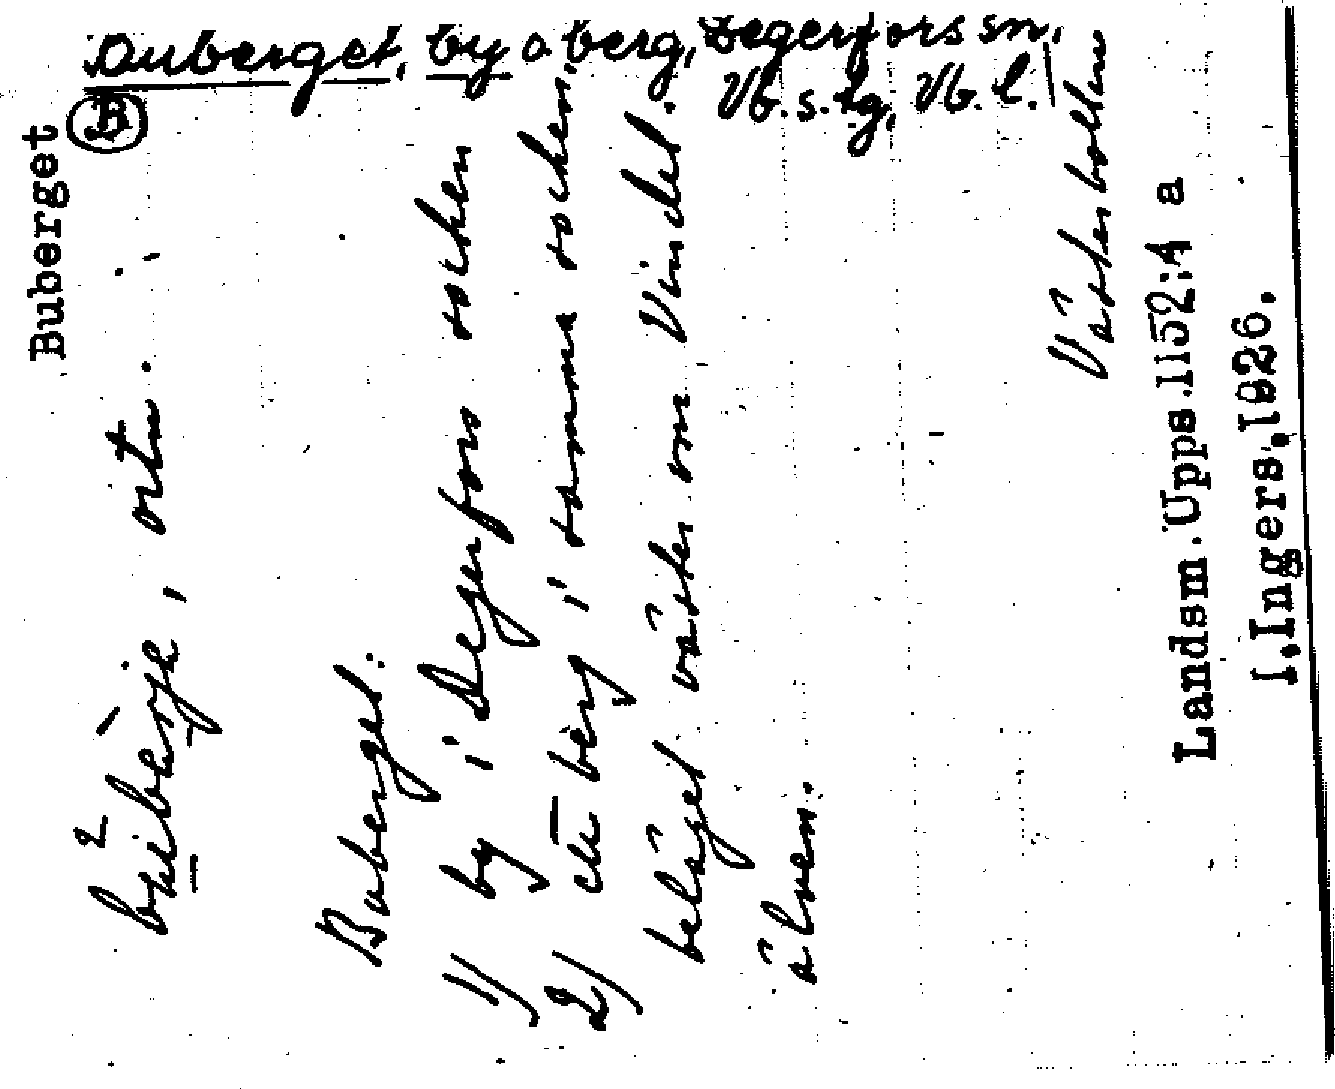 Buberget, by o berg, Degerfors sn,
Vb. s. lg, Vb. l.
B
Buberget
ortn.
Buberget:
1/ by i Degerfors socken
2/ ett berg i samma socken,
beläget väster om Vindel.
älven.
Västerbotten
Landsm. Upps. 1152:4 a
I. Ingers, 1926.